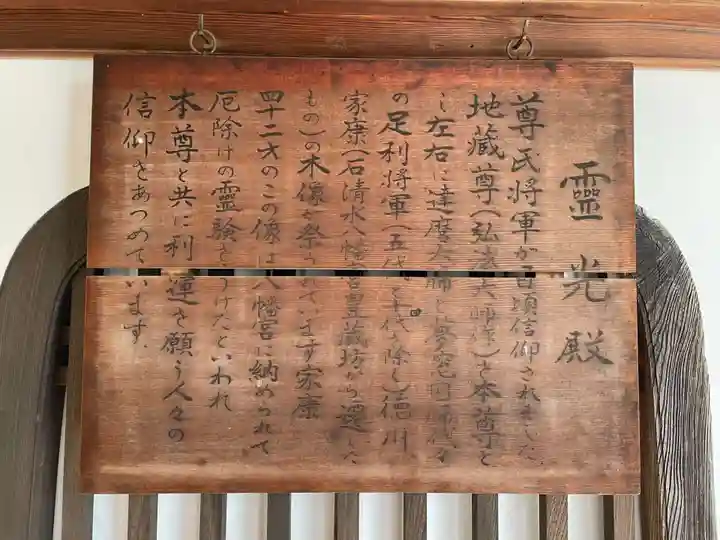 靈光殿
尊氏将軍が日頃信仰されました
地蔵尊(弘法大師作)と本尊と
し左右に達磨大師と夢窓国師
の足利将軍(五代と十代を除く)徳川
家康(石清水八幡宮豊蔵坊から遷した
もの)の木像が祭られています家康
四十二才のこの像は八幡宮に納められて
厄除けの靈験をうけたといわれ
本尊と共に利運を願う人々の
信仰をあつめています.